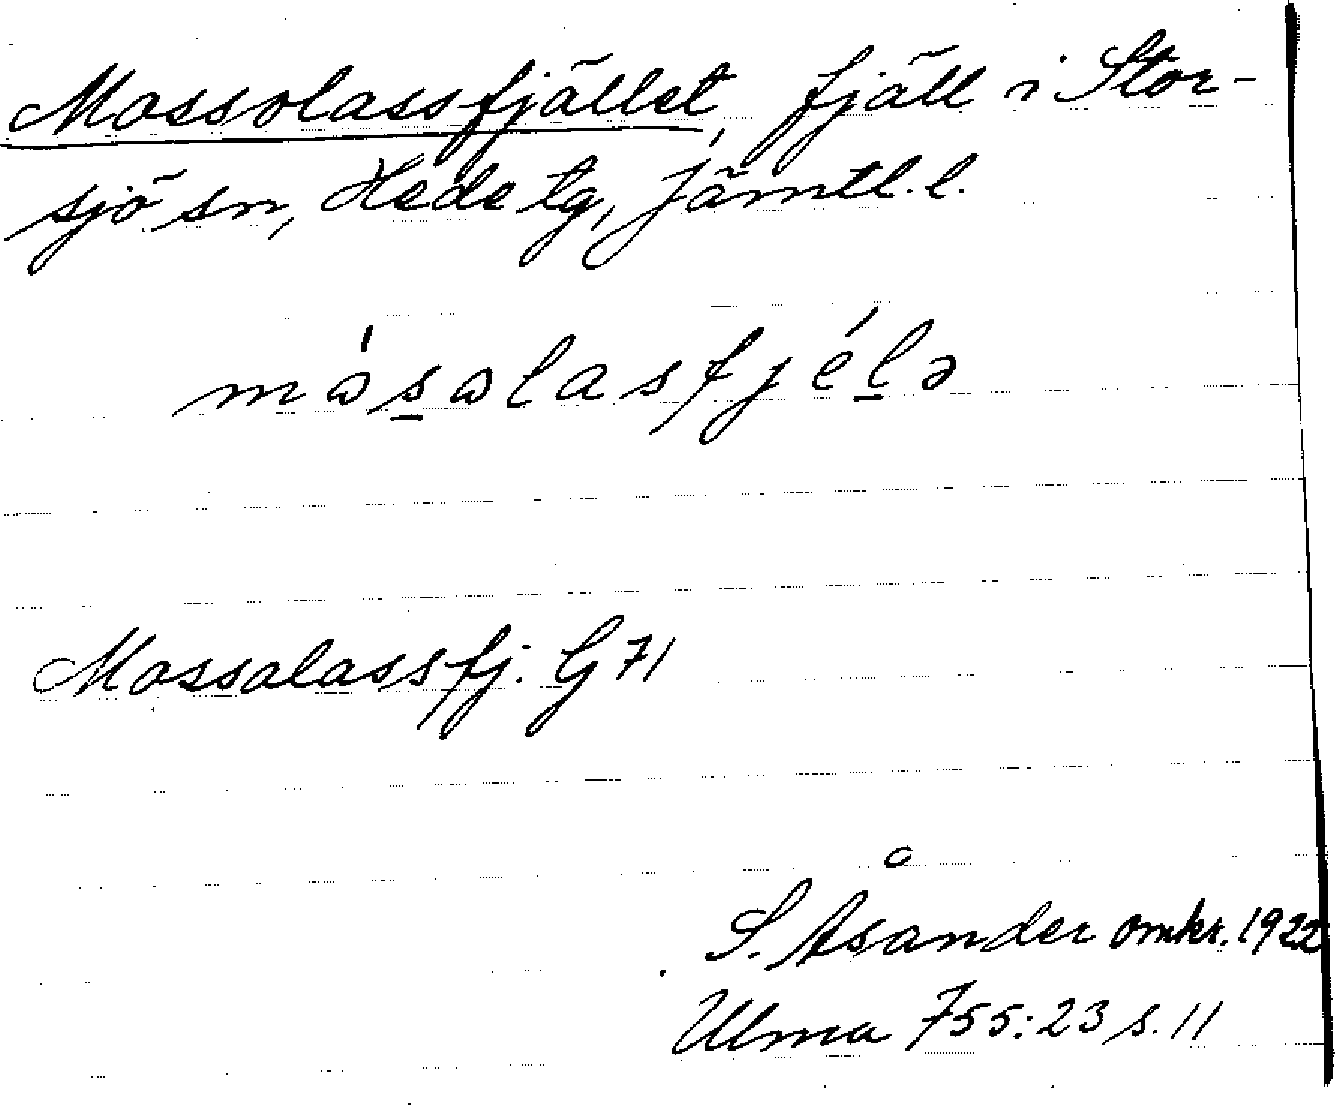 Mossolassfjället, fjäll i Stor-
sjö sn, Hede tg, Jämtl. l.
mɷ́s̲ɷlasfjél̲ə
Mossalassfj. G 71
S. Åsander omkr. 1922
Ulma 755:23 s. 11